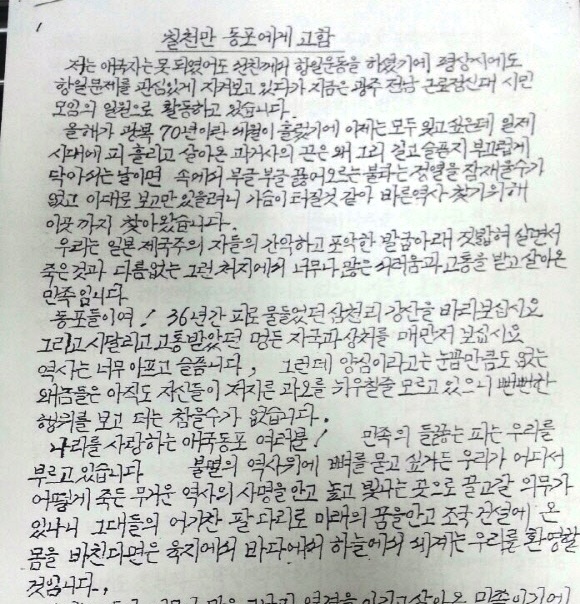 칠천만 동포에게 고함
저는 애국자는 못 되였어도 선친께서 항일운동을 하였기에 평상시에도
항일문제를 관심있게 지켜보고 있다가 지금은 광주 전남 근로정신대 시민
모임의 일원으로 활동하고 있습니다.
올해가 광복 70년이란 세월이 흘렀기에 이제는 모두 잊고 싶은데 일제
시대에 피 흘리고 살아온 과거사의 끈은 왜 그리 길고 슬픈지 부끄럽게
닥아서는 날이면 속에서 부글 부글 끓어오르는 불타는 정열을 잠재울수가
없고 이대로 보고만 있을려니 가슴이 터질것 같아 바른역사 찾기위해
이곳 까지 찾아왔습니다.
우리는 일본 제국주의 자들의 간악하고 포악한 발굽아래 짓밟혀 살면서
죽은것과 다름없는 그런 처지에서 너무나 많은 서러움과 고통을 받고 살아온
민족입니다
동포들이여! 36년간 피로 물들었던 삼천리 강산을 바라보십시요
그리고 시달리고 고통받았던 멍든 자국과 상처를 매만저 보십시요
역사는 너무 아프고 슬픔니다, 그런데 양심이라고는 눈꼽만큼도 없는
왜놈들은 아직도 자신들이 저지른 과오를 뉘우칠줄 모르고 있으니 뻔뻔한
행위를 보고 더는 참을수가 없습니다.
나라를 사랑하는 애국동포 여러분! 민족의 들끓는 피는 우리를
부르고 있습니다 불멸의 역사위에 뼈를 묻고 싶거든 우리가 어디서
어떻게 죽든 무거운 역사의 사명을 안고 높고 빛나는 곳으로 끌고갈 의무가
있나니 그대들의 억가찬 팔 다리로 미래의 꿈을안고 조국 건설에 온
몸을 바친다면은 육지에서 바다에서 하늘에서 세계는 우리를 환영할
것입니다.,